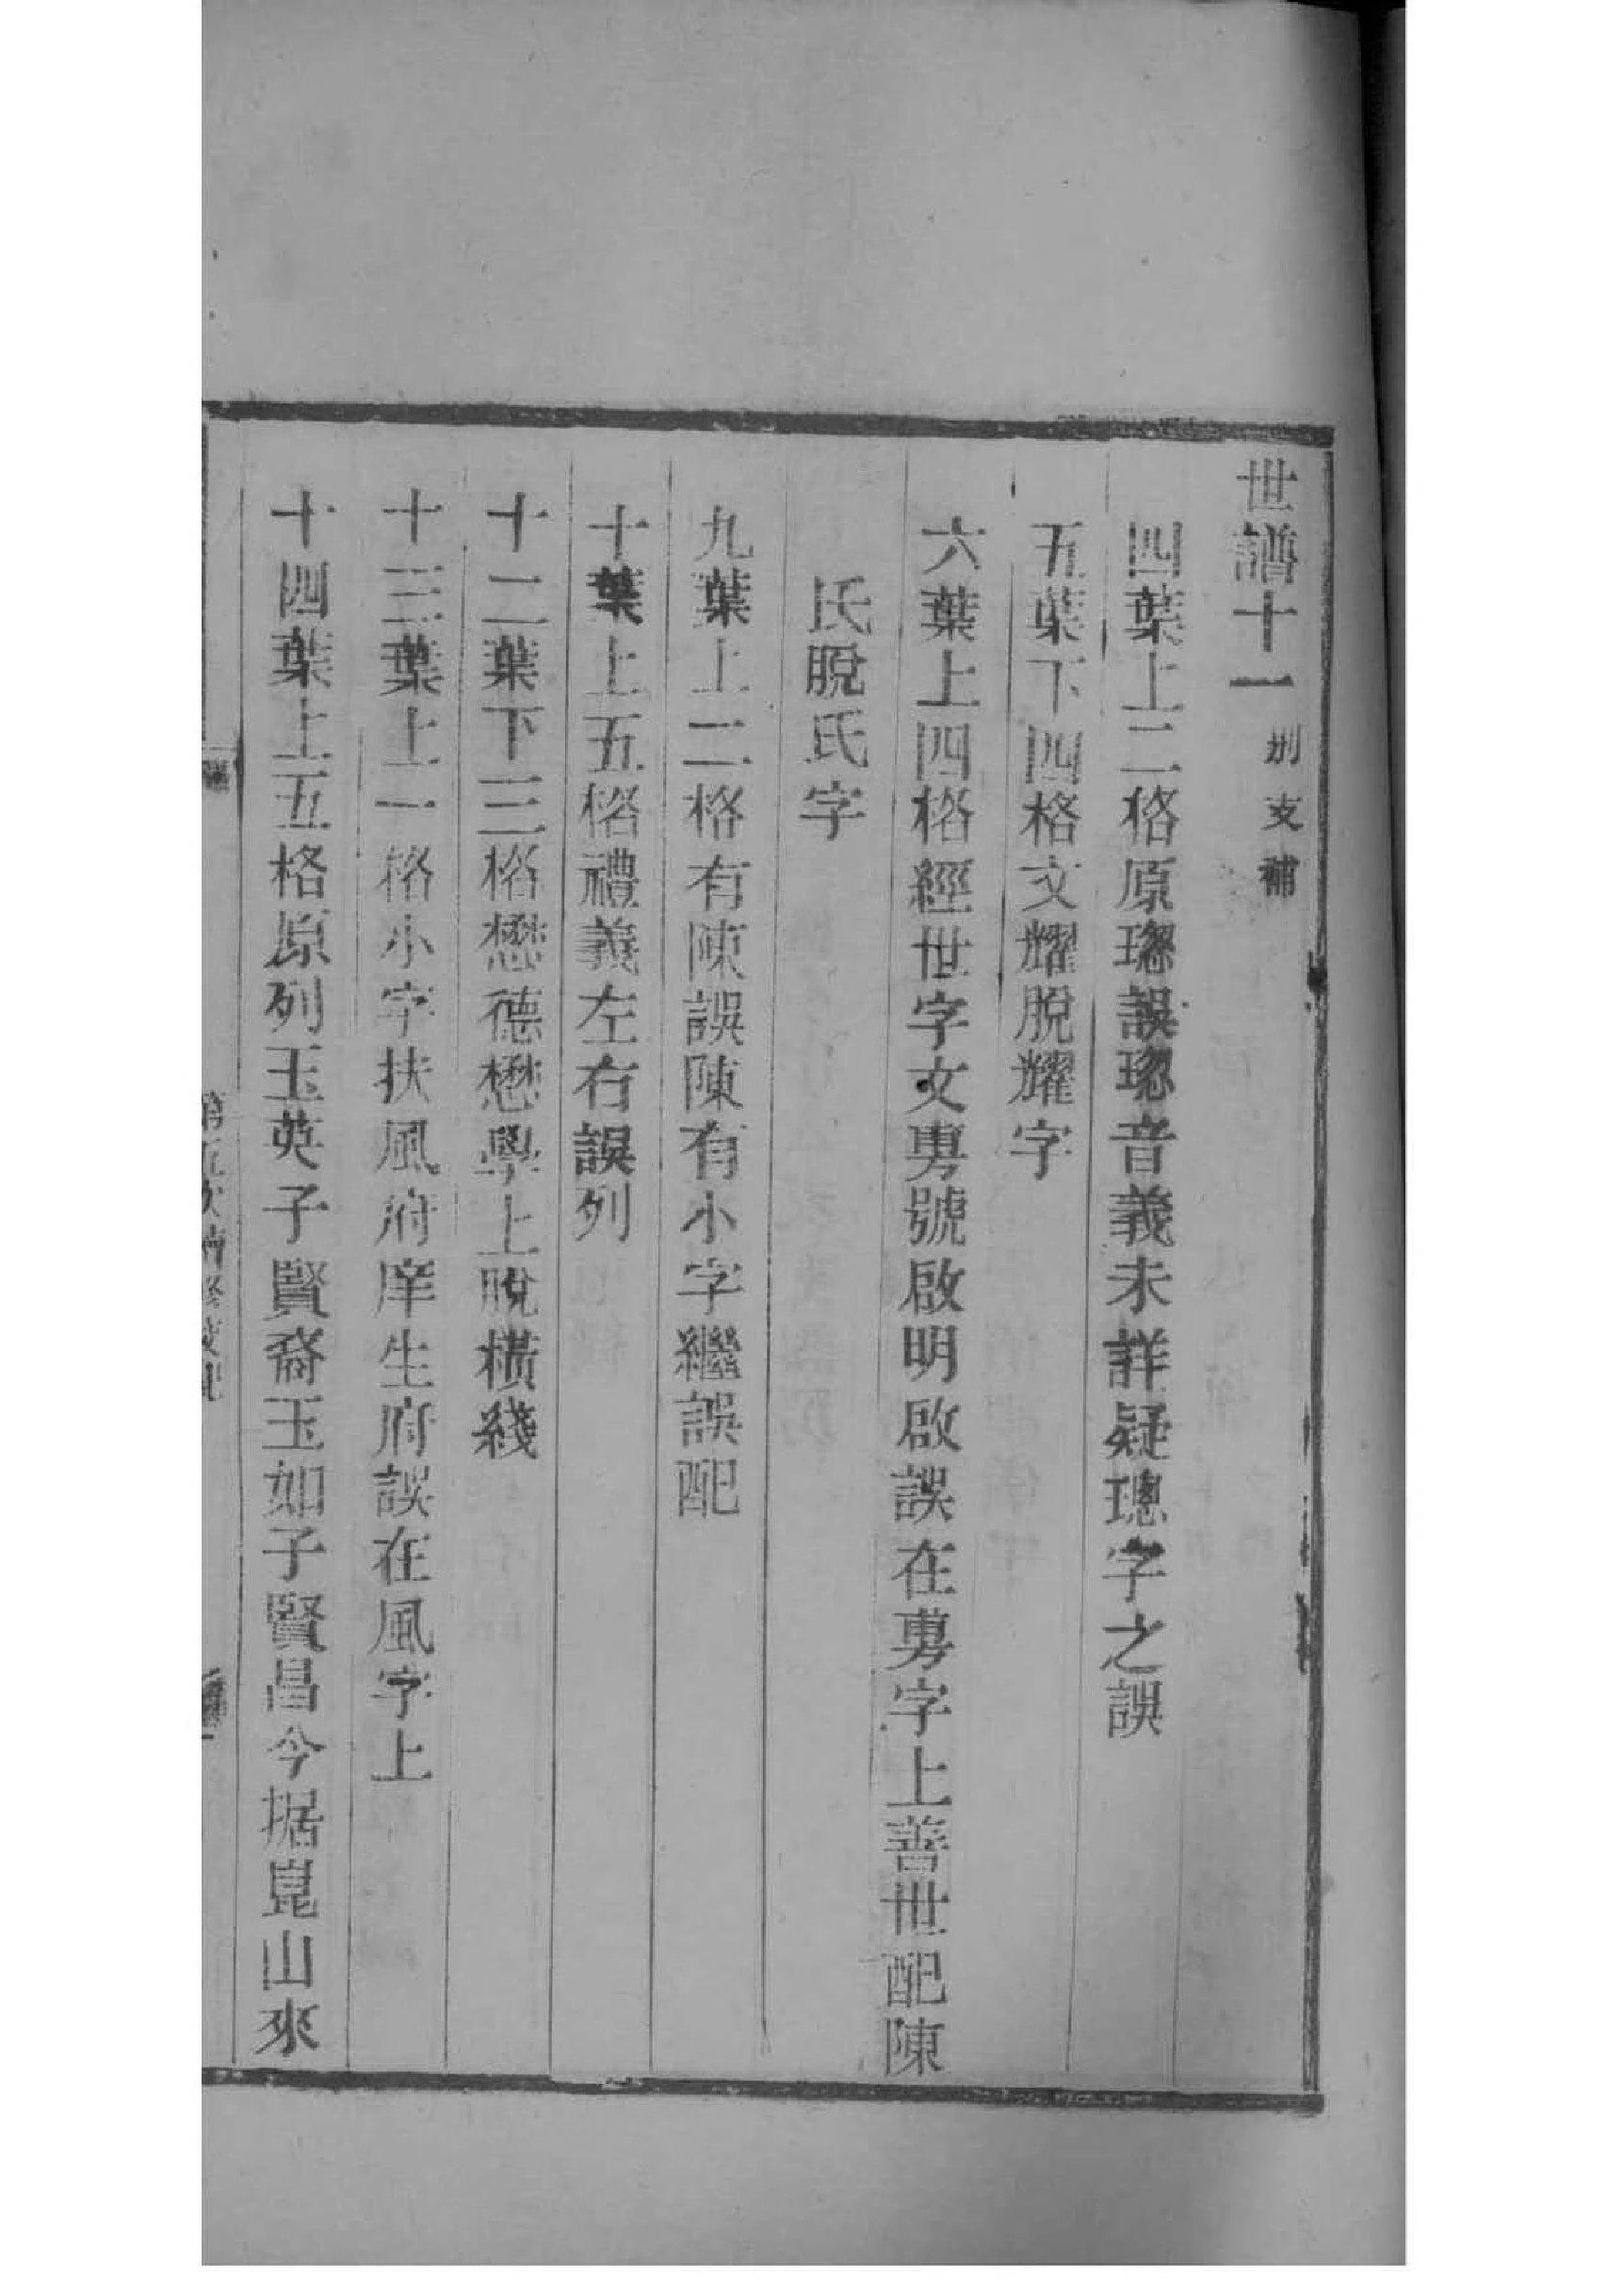 世譜十一 別支補
四葉上二格原璁誤璁音義未詳疑璁字之誤
五葉下四格文耀脫耀字
六葉上四格經世字文甹號啟明啟誤在甹字上善世配陳
氏脫氏字
九葉上二格有陳誤陳有小字繼誤配
十葉上五格禮義左右誤列
十二葉下三格懋德懋學上脫橫綫
十三葉上一格小字扶風府庠生府誤在風字上
十四葉上五格原列玉英子賢裔玉如子賢昌今据崑山來